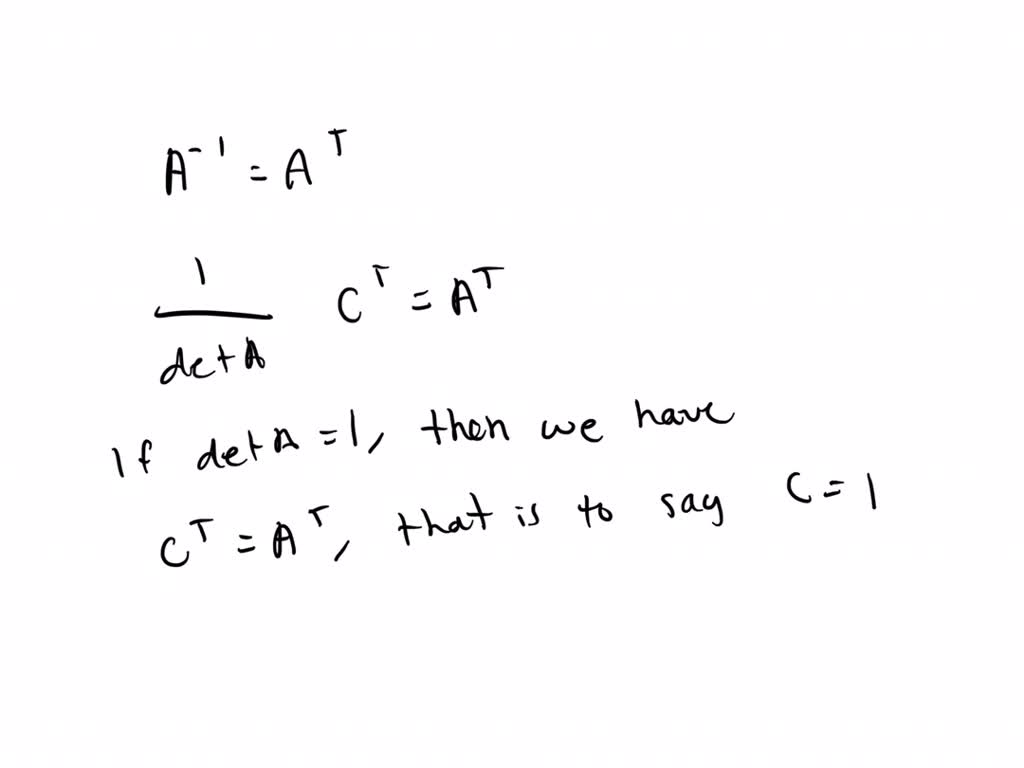 A⁻¹ = Aᵀ
1
det A Cᵀ = Aᵀ
If det A = 1, then we have
Cᵀ = Aᵀ, that is to say C = 1